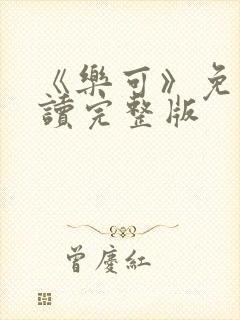 《樂可》免
讀完整版
曾慶紅